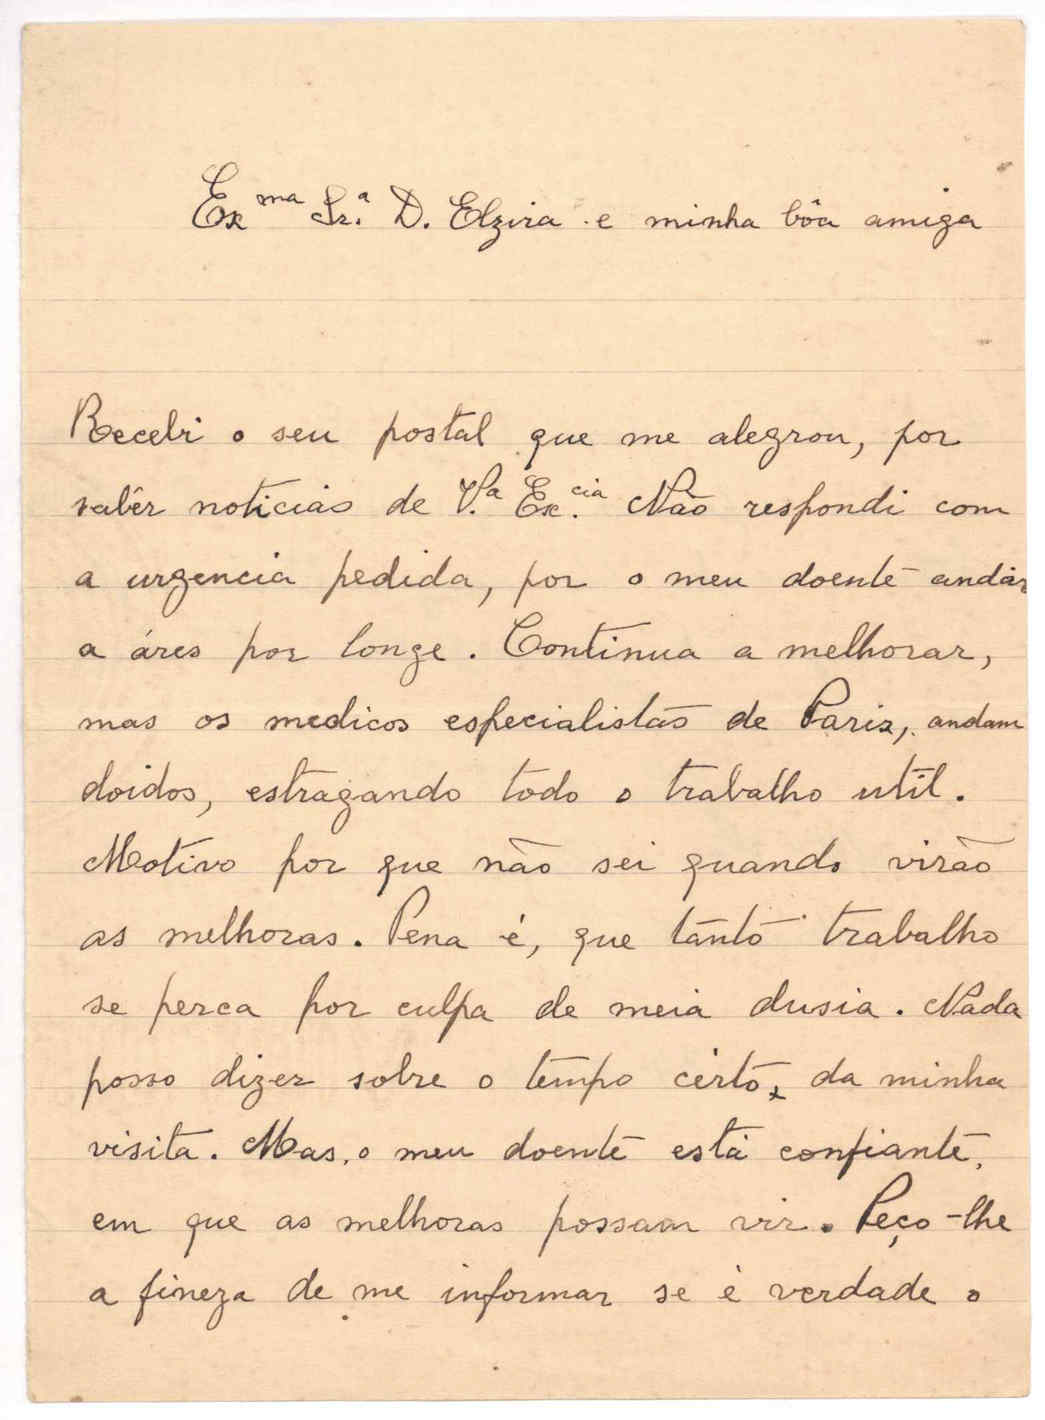 Ex.ma Sr.a D. Elzira e minha bôa amiga
Recebi o seu postal que me alegrou, por
sabêr noticias de V.a Ex.cia Não respondi com
a urgencia pedida, por o meu doente andár
a áres por longe. Continua a melhorar,
mas os medicos especialistas de Paris, andam
doidos, estragando todo o trabalho util.
Motivo por que não sei quando virão
as melhoras. Pena é, que tanto trabalho
se perca por culpa de meia dusia. Nada
posso dizer sobre o tempo cérto, da minha
visita. Mas, o meu doente está confiante,
em que as melhoras possam vir. Peço-lhe
a fineza de me informar se é verdade o